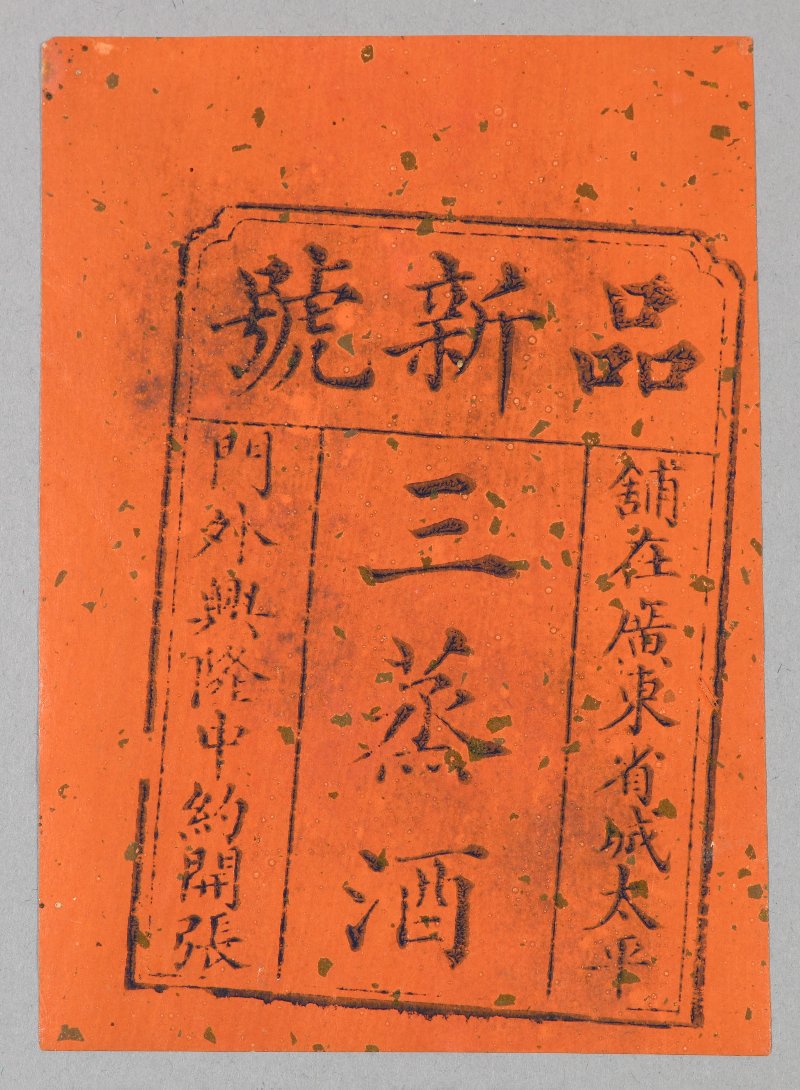 品新號
舖在廣東省城太平
三蒸酒
門外興隆中約開張